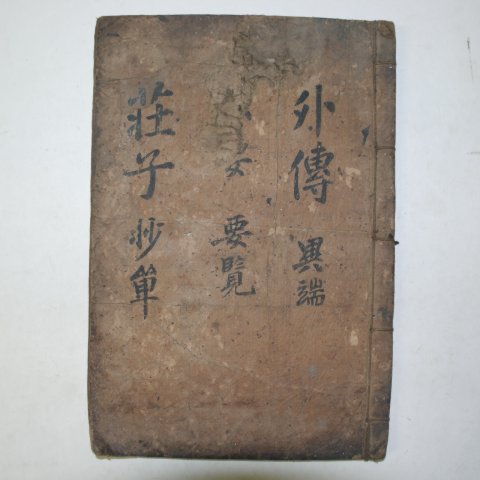 外傳 異端
要覽
莊子 抄單